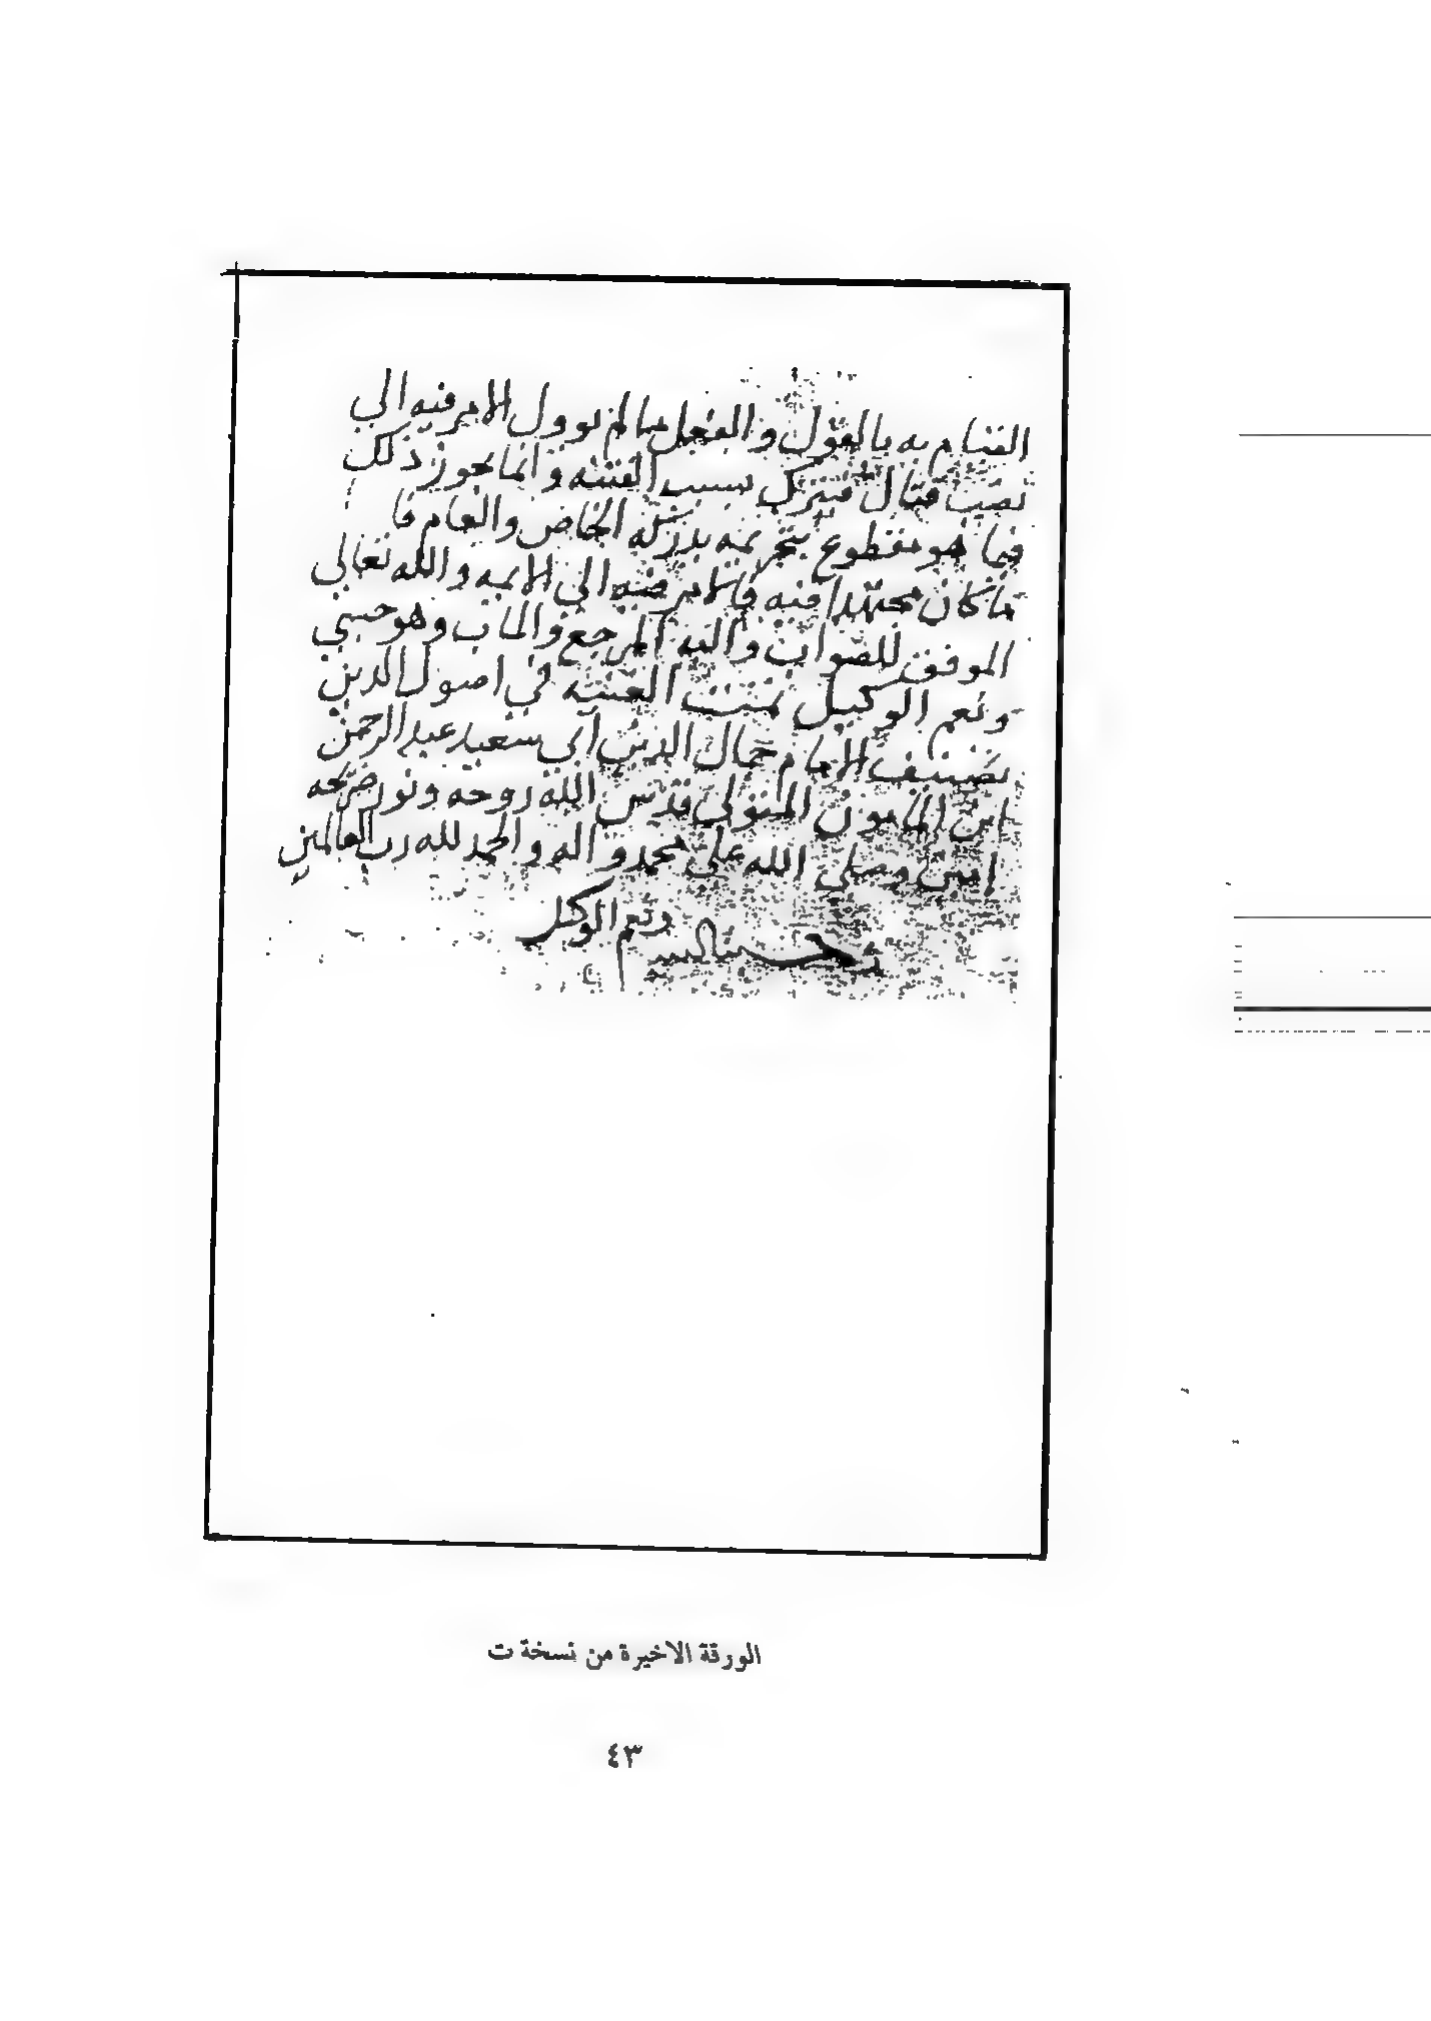 القيام به بالقول والفعل ما لم يوول الامر فيه الي
نصب قتال فيترك بسبب الفتنه وانما يجوز ذلك
فيما هو مقطوع بتحريمه يدركه الخاص والعام فا
ما كان مجتهدا فيه فالامر فيه الي الايمه والله تعالي
الموفق للصواب واليه المرجع والماب وهو حسبي
ونعم الوكيل تمت الغنيه في اصول الدين
تصنيف الامام جمال الدين ابي سعيد عبد الرحمن
ابن المامون المتولي قدس الله روحه ونور ضريحه
امين وصلي الله علي محمد واله والحمد لله رب العالمين
ونعم الوكيل
الورقة الاخيرة من نسخة ت
٤٣